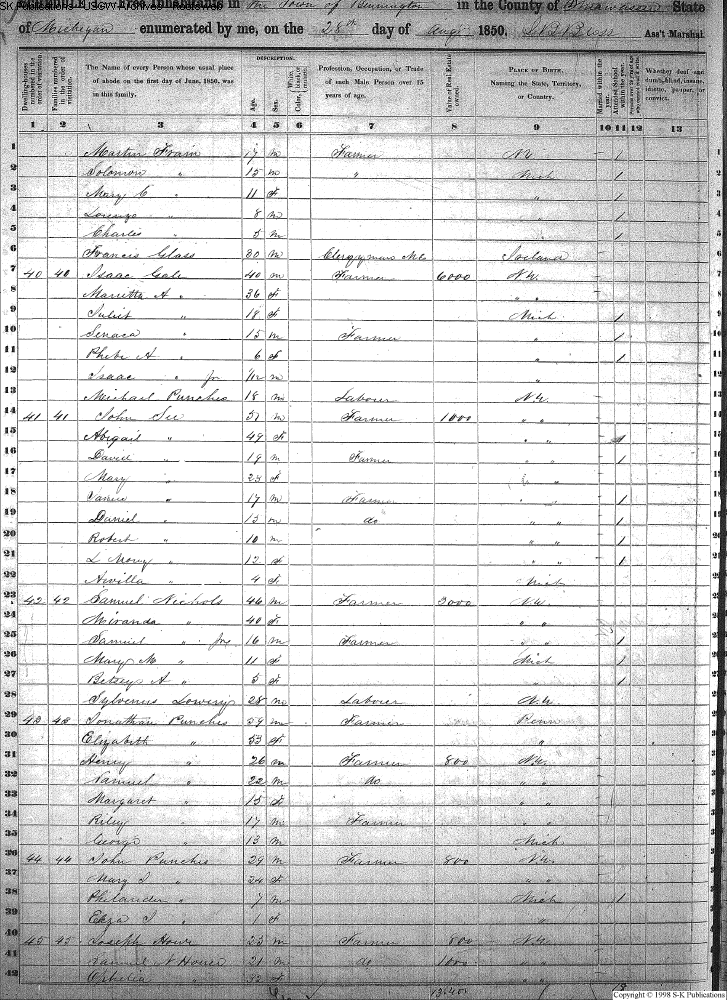 Free Inhabitants in the Town of Bennington in the County of Shiawassee State
of Michigan enumerated by me, on the 28th day of Augt 1850. Ass't Marshal.
Dwelling-houses numbered in the order of visitation.
Families numbered in the order of visitation.
The Name of every Person whose usual place of abode on the first day of June, 1850, was in this family.
DESCRIPTION.
Age.
Sex.
Color,
Profession, Occupation, or Trade of each Male Person over 15 years of age.
Value of Real Estate owned.
PLACE OF BIRTH, Naming the State, Territory, or Country.
Married within the year.
Attended School within the year.
Whether deaf and dumb, blind, insane, idiotic, pauper, or convict.
1 2 3 4 5 6 7 8 9 10 11 12 13
1 Martin Frain 17 m Farmer N.Y. 1
2 Solomon " 15 m " Mich 1
3 Mary C " 11 f " 1
4 Lorenzo " 8 m " 1
5 Charles " 5 m " 1
6 Francis Glass 30 m Clergyman Ireland
7 40 40 Isaac Gale 40 m Farmer 6000 N.Y.
8 Marietta A " 36 f " "
9 Juliet " 18 f Mich 1
10 Seneca " 15 m Farmer " 1
11 Phebe A " 6 f " 1
12 Isaac " Jr m "
13 Michael Punches 18 m Labourer N.Y.
14 41 41 John 51 m Farmer 1000 " "
15 Abigail " 49 f " "
16 David " 19 m Farmer " " 1
17 Mary " 23 f "
18 " 17 m Farmer " 1
19 Daniel " 13 m do " " 1
20 Robert " 10 m " " 1
21 L Mary " 12 f " " 1
22 " 4 f Mich
23 42 42 Samuel Nichols 46 m Farmer 3000 N.Y.
24 Miranda " 40 f " "
25 Samuel " Jr 16 m Farmer " 1
26 Mary M " 11 f Mich 1
27 Betsey A " 5 f " 1
28 Sylvenus Lowery 28 m Labourer N.Y.
29 43 43 Jonathan Punches 59 m Farmer Penn
30 Elizabeth " 53 f "
31 Henry " 26 m Farmer 800 N.Y.
32 " 22 m do " "
33 Margaret " 15 f " "
34 Riley " 17 m Farmer " "
35 George " 13 m Mich
36 44 44 John Punches 29 m Farmer 800 N.Y.
37 Mary J " 24 f " "
38 Philander " 7 m Mich 1
39 " 1 f "
40 45 45 Joseph 23 m Farmer 800 N.Y.
41 Samuel N 21 m do 1000 " "
42 Ophelia " f " "
Copyright © 1998 S-K Publications